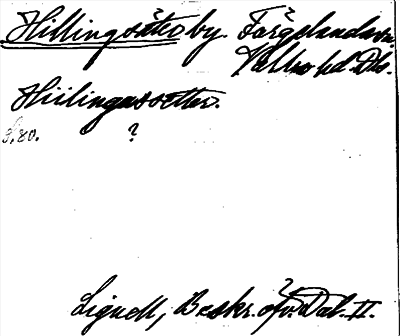 Hillingsäter by. Färgelanda sn.
Valbo hd Dls.
Hiilingassetter.
s. 80. ?
Lignell, Beskr. öfv. Dal. II.